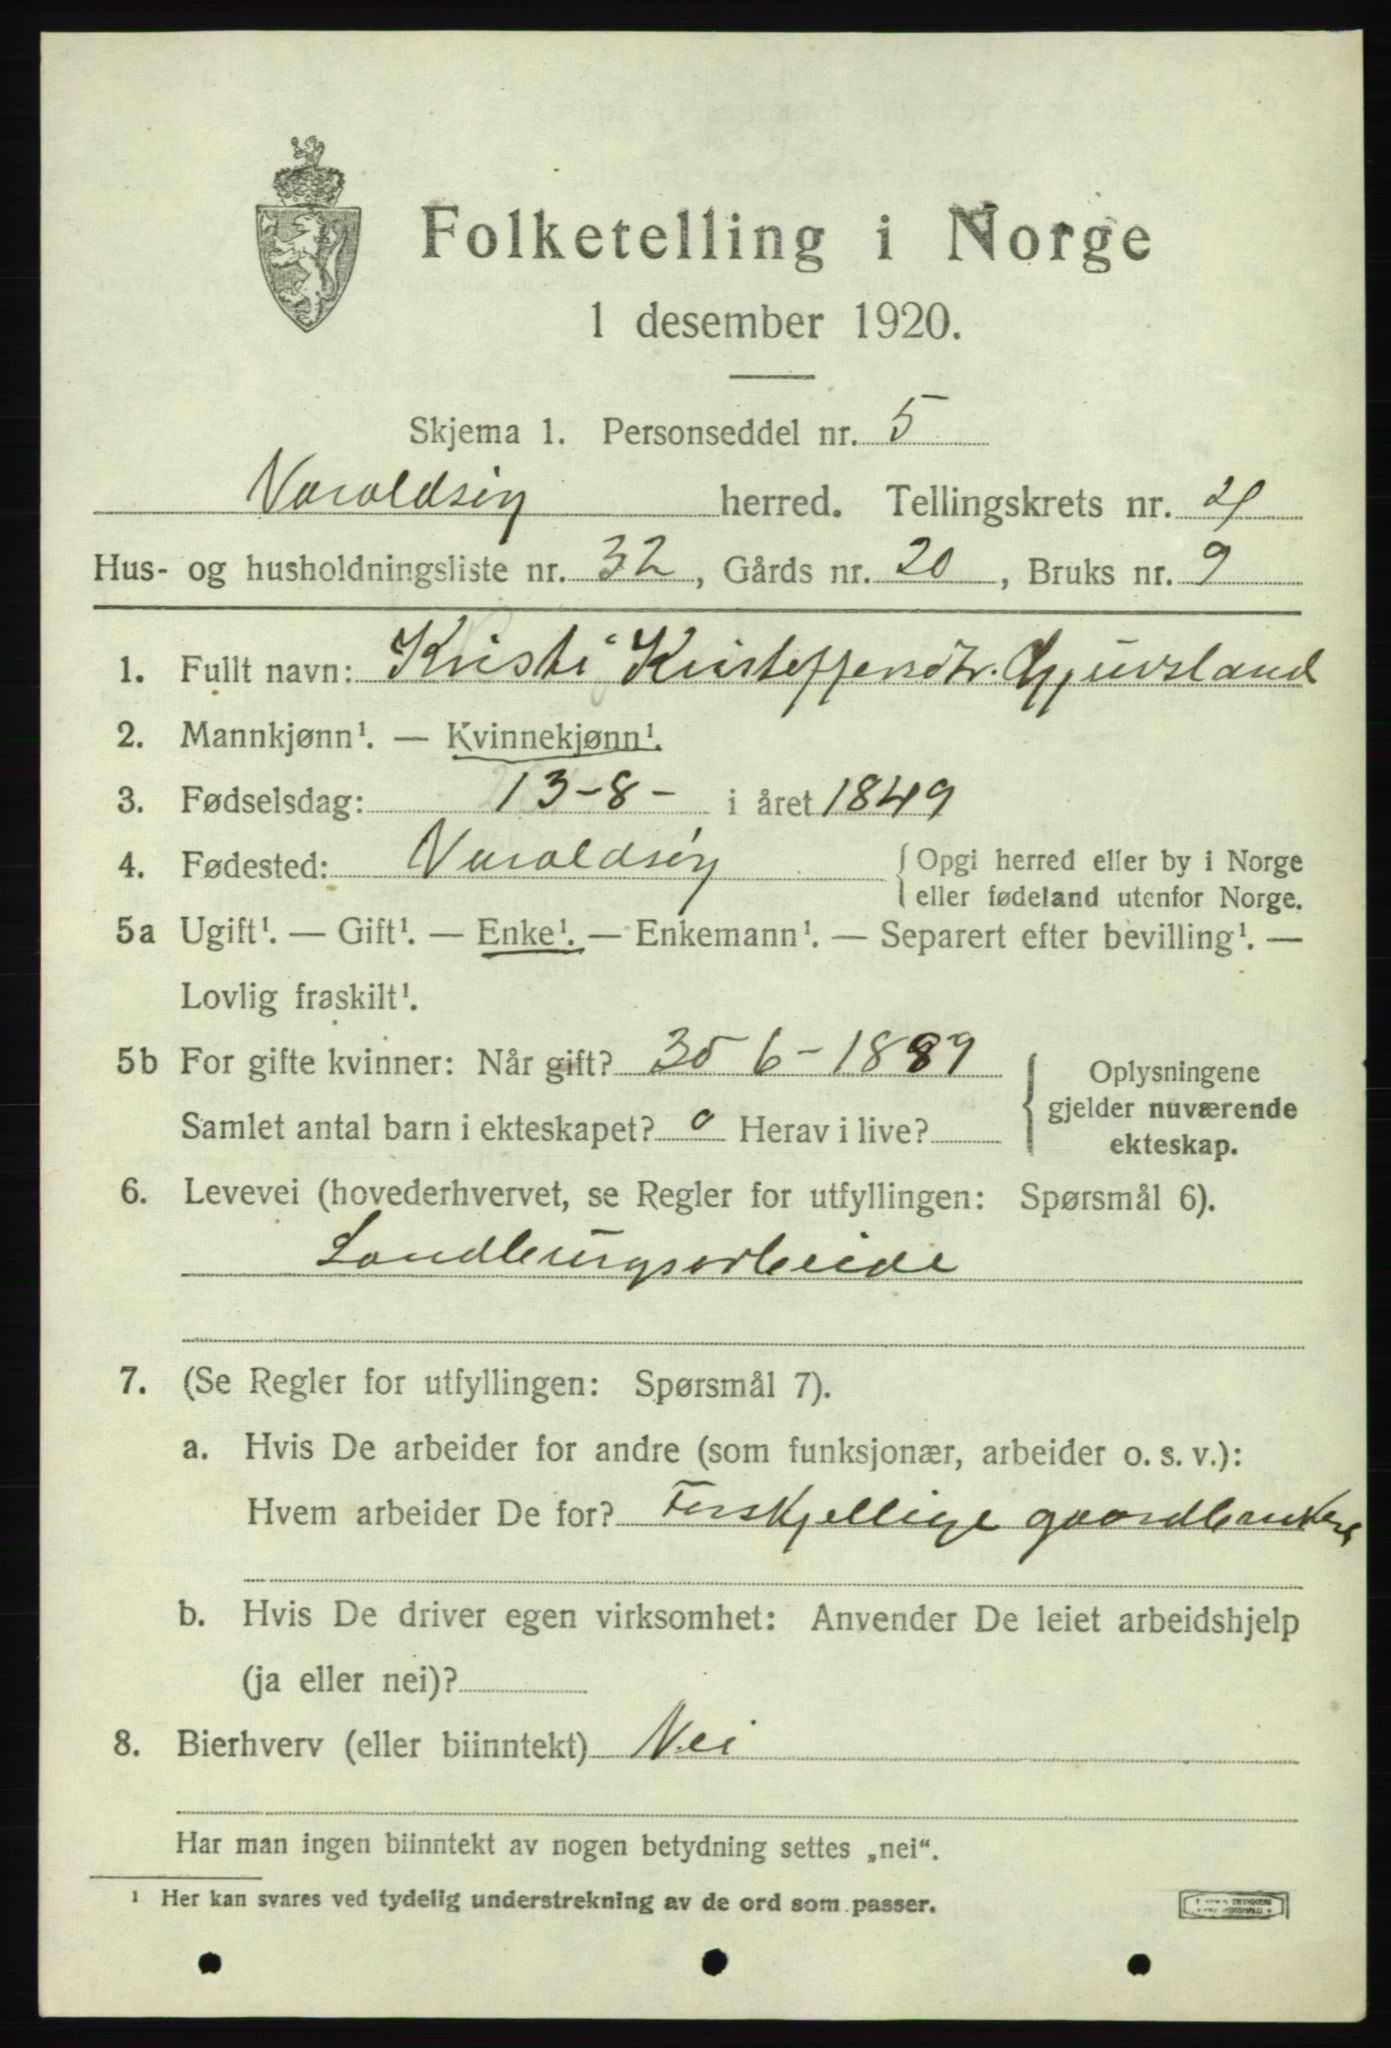 Folketelling i Norge
1 desember 1920.
Skjema 1. Personseddel nr. 5
Varaldsöy herred. Tellingskrets nr. 4
Hus- og husholdningsliste nr. 32, Gårds nr. 20, Bruks nr. 9
1. Fullt navn: Kristi Kristoffersdtr. Gjuvsland
2. Mannkjønn¹. — Kvinnekjønn¹.
3. Fødselsdag: 13-8- i året 1849
4. Fødested: Varaldsöy { Opgi herred eller by i Norge
eller fødeland utenfor Norge.
5a Ugift¹. — Gift¹. — Enke¹. — Enkemann¹. — Separert efter bevilling¹. —
Lovlig fraskilt¹.
5b For gifte kvinner: Når gift? 30 6-1889
Samlet antal barn i ekteskapet? 0 Herav i live?
{ Oplysningene
gjelder nuværende
ekteskap.
6. Levevei (hovederhvervet, se Regler for utfyllingen: Spørsmål 6).
Landbrugsarbeide
7. (Se Regler for utfyllingen: Spørsmål 7).
a. Hvis De arbeider for andre (som funksjonær, arbeider o. s. v.):
Hvem arbeider De for? Forskjellige gaardbrukere
b. Hvis De driver egen virksomhet: Anvender De leiet arbeidshjelp
(ja eller nei)?
8. Bierhverv (eller biinntekt) Nei
Har man ingen biinntekt av nogen betydning settes „nei".
¹ Her kan svares ved tydelig understrekning av de ord som passer.